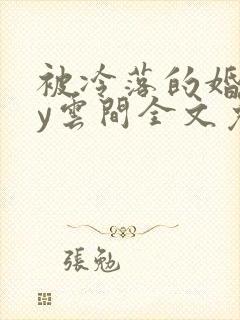 被冷落的婚
y雲間全文
張勉